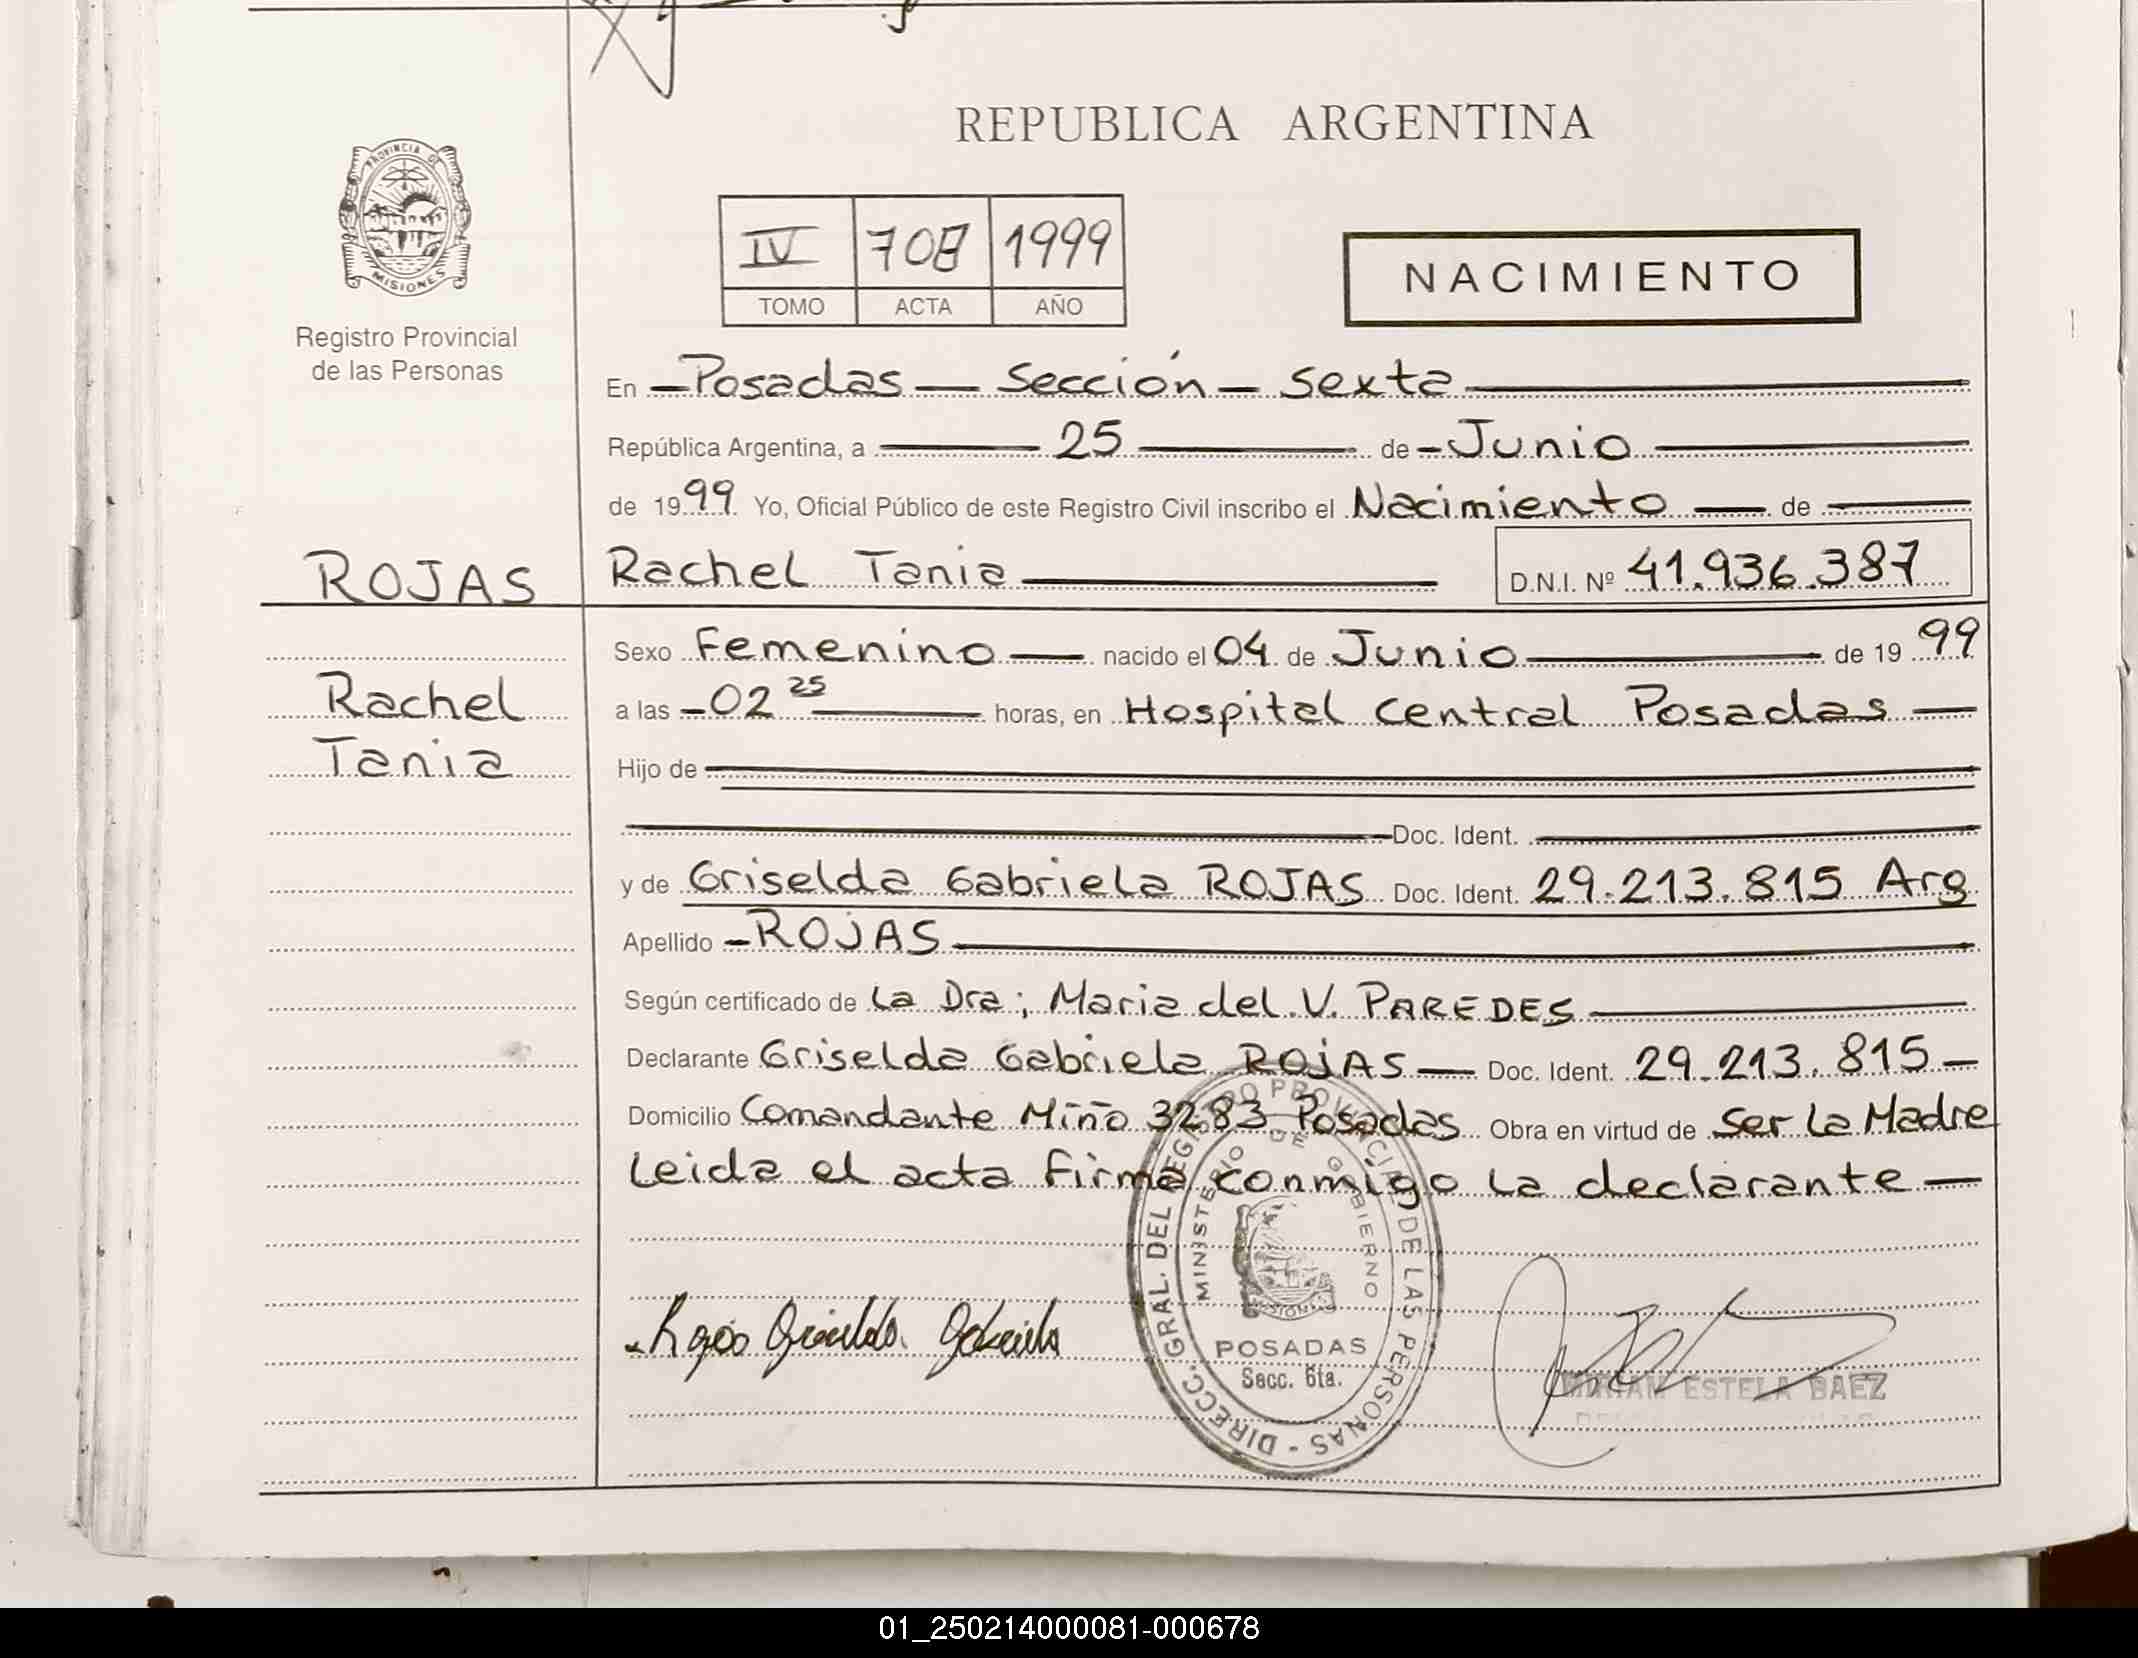 REPUBLICA ARGENTINA
PROVINCIA DE MISIONES
Registro Provincial
de las Personas
IV 708 1999
TOMO ACTA AÑO
NACIMIENTO
En Posadas — Sección — Sexta
República Argentina, a 25 de Junio
de 1999 Yo, Oficial Público de este Registro Civil inscribo el Nacimiento — de
ROJAS
Rachel Tania
D.N.I. Nº 41.936.387
Rachel
Tania
Sexo Femenino — nacido el 04 de Junio de 1999
a las 02 25 horas, en Hospital Central Posadas —
Hijo de
Doc. Ident.
y de Griselda Gabriela ROJAS Doc. Ident. 29.213.815 Arg
Apellido — ROJAS
Según certificado de La Dra; Maria del V. PAREDES
Declarante Griselda Gabriela ROJAS — Doc. Ident. 29.213.815 —
Domicilio Comandante Miño 3283 Posadas Obra en virtud de Ser La Madre
Leida el acta firma conmigo La declarante —
DIRECC. GRAL. DEL REGISTRO PROVINCIAL DE LAS PERSONAS -
MINISTERIO DE GOBIERNO
MISIONES
POSADAS
Secc. 6ta.
Rojas Griselda Gabriela
MIRIAM ESTELA BAEZ
01_250214000081-000678